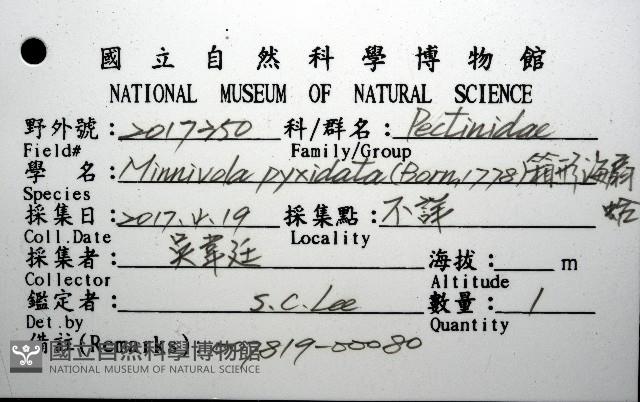 國立自然科學博物館
NATIONAL MUSEUM OF NATURAL SCIENCE
野外號: 2017-250 科/群名: Pectinidae
Field# Family/Group
學 名: Minnivola pyxidata (Born, 1778) 箱形海扇蛤
Species
採集日: 2017.4.19 採集點: 不詳
Coll.Date Locality
採集者: 吳韋廷 海拔: m
Collector Altitude
鑑定者: S.C.Lee 數量: 1
Det.by Quantity
備註(Remarks): 819-00080
國立自然科學博物館
NATIONAL MUSEUM OF NATURAL SCIENCE